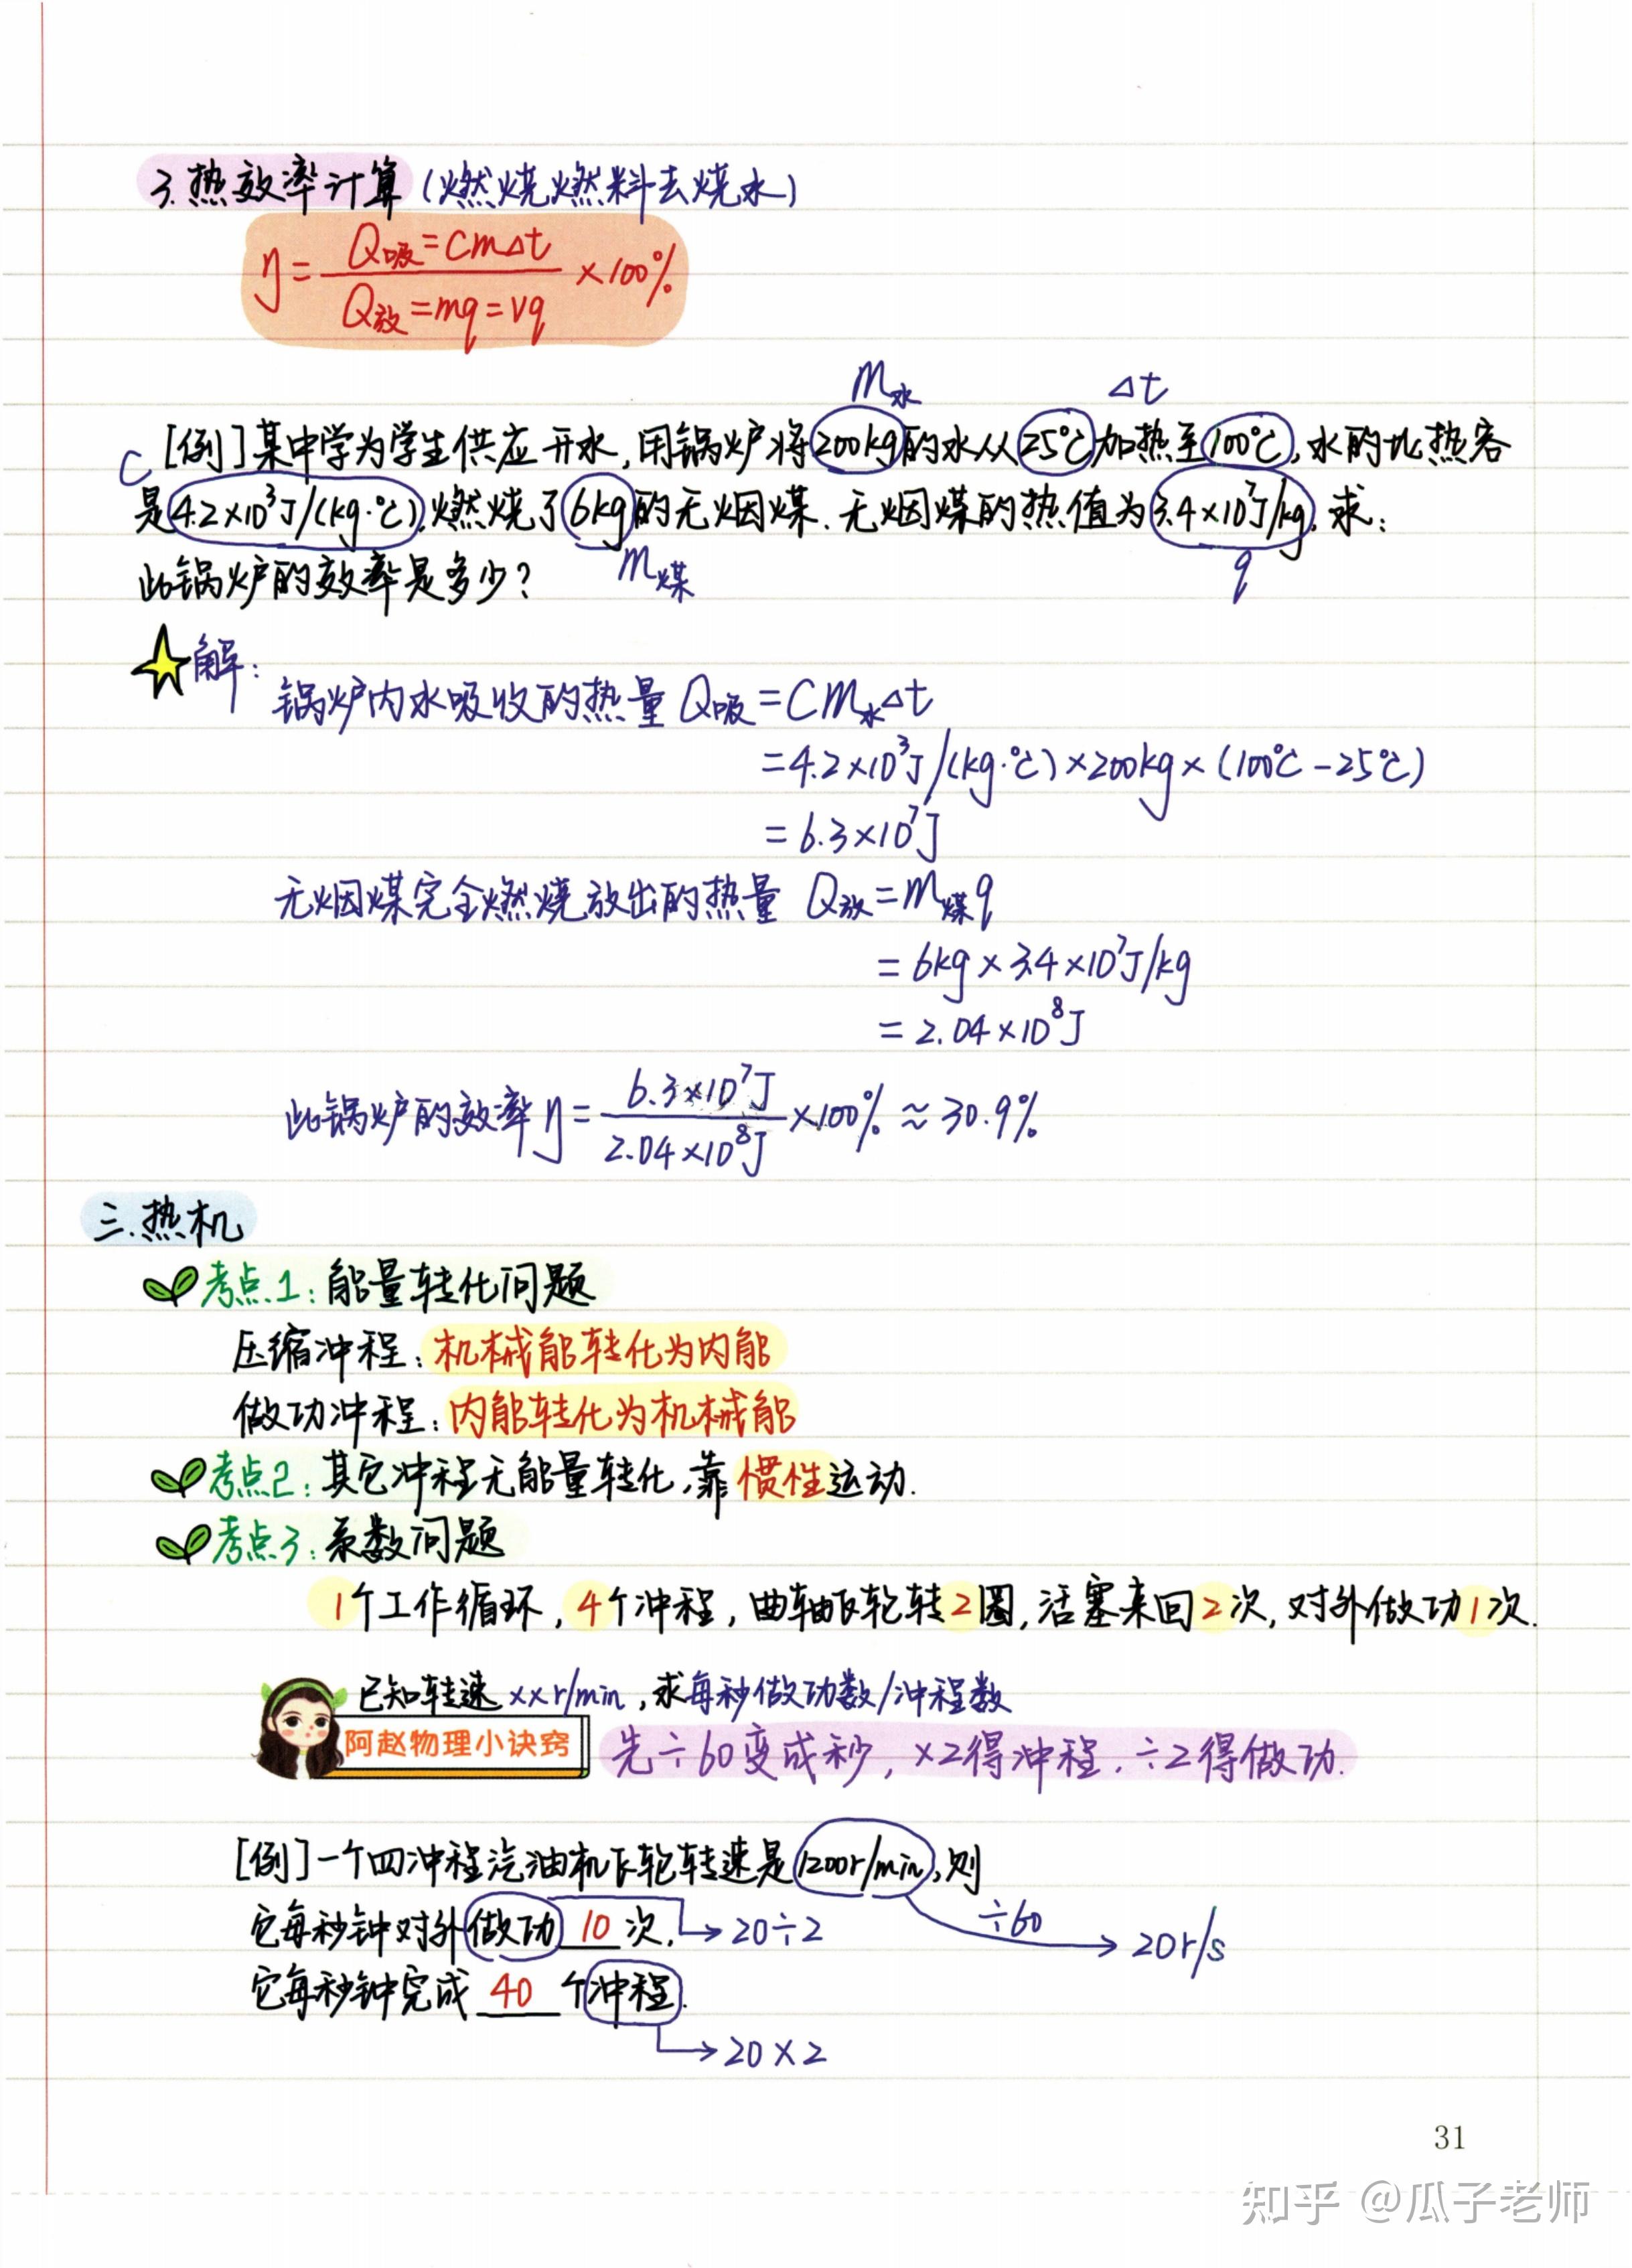 3.热效率计算(燃烧燃料去烧水)
η = Q吸=cmΔt / Q放=mq=Vq ×100%
m水 Δt
C [例]某中学为学生供应开水,用锅炉将200kg的水从25℃加热至100℃,水的比热容
是4.2×10³J/(kg·℃),燃烧了6kg的无烟煤.无烟煤的热值为3.4×10⁷J/kg,求:
m煤 q
此锅炉的效率是多少?
解:
锅炉内水吸收的热量 Q吸=Cm水Δt
=4.2×10³J/(kg·℃)×200kg×(100℃-25℃)
=6.3×10⁷J
无烟煤完全燃烧放出的热量 Q放=m煤q
=6kg×3.4×10⁷J/kg
=2.04×10⁸J
此锅炉的效率η= 6.3×10⁷J / 2.04×10⁸J ×100%≈30.9%
三.热机
考点1:能量转化问题
压缩冲程:机械能转化为内能
做功冲程:内能转化为机械能
考点2:其它冲程无能量转化,靠惯性运动.
考点3:系数问题
1个工作循环,4个冲程,曲轴飞轮转2圈,活塞来回2次,对外做功1次.
已知转速××r/min,求每秒做功数/冲程数
阿赵物理小诀窍 先÷60变成秒,×2得冲程.÷2得做功.
[例]一个四冲程汽油机飞轮转速是1200r/min,则
÷60 → 20r/s
它每秒钟对外做功 10 次. → 20÷2
它每秒钟完成 40 个冲程.
→20×2
31
知乎 @瓜子老师